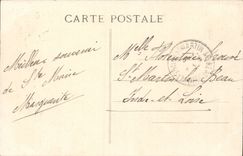 CARTE POSTALE
Meilleur souvenir
de Ste Maure
Marguerite
Melle
St Martin le Beau
Indre et Loire
MARTIN